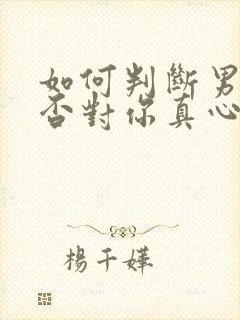 如何判斷男
否對你真心
楊千嬅